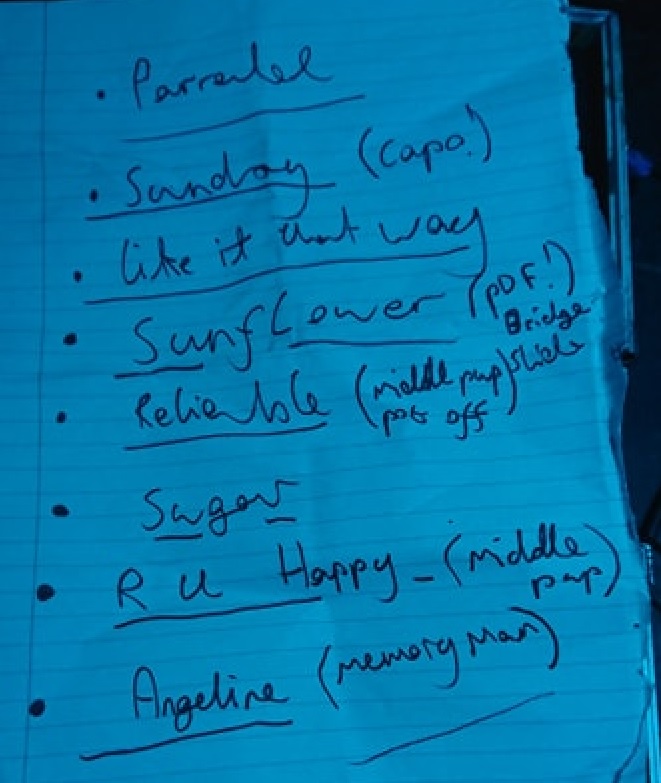 • Parralel
• Sunday (capo!)
• like it that way
• Sunflower (PDF!)
Bridge
• Reliable (middle pup) slide
pots off
• Sugar
• R U Happy - (middle
pup)
• Angeline (memory man)